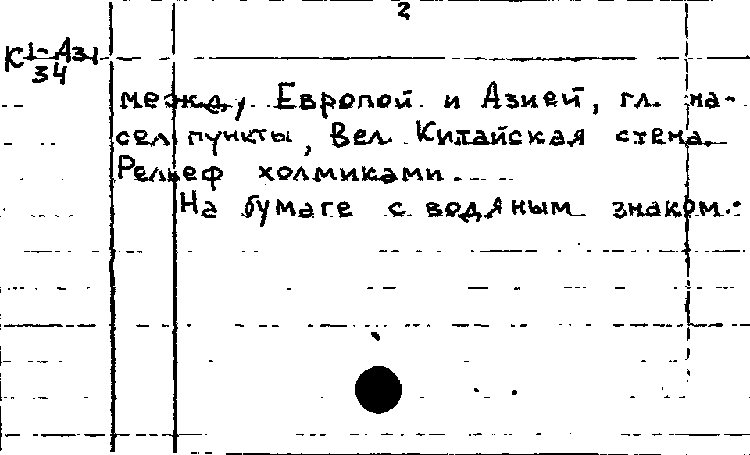 2
К 1-Аз1
34
между Европой и Азией, гл. на-
сел пункты, Вел. Китайская стена.
Рельеф холмиками.
На бумаге с водяным знаком: